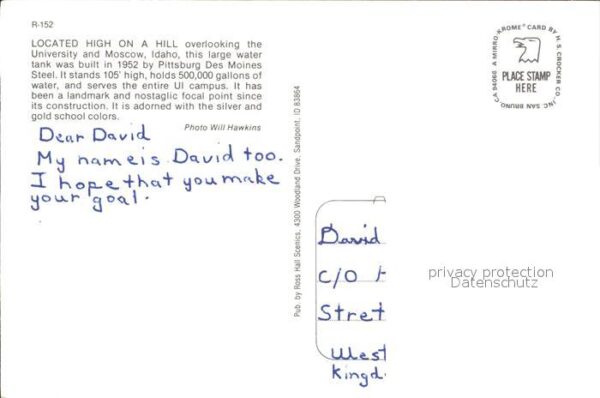 R-152
LOCATED HIGH ON A HILL overlooking the
University and Moscow, Idaho, this large water
tank was built in 1952 by Pittsburg Des Moines
Steel. It stands 105' high, holds 500,000 gallons of
water, and serves the entire UI campus. It has
been a landmark and nostaglic focal point since
its construction. It is adorned with the silver and
gold school colors.
Photo Will Hawkins
Dear David
My name is David too.
I hope that you make
your goal.
Pub. by Ross Hall Scenics, 4300 Woodland Drive, Sandpoint, ID 83864
A MIRRO-KROME® CARD BY H. S. CROCKER CO., INC. SAN BRUNO, CA 94066
PLACE STAMP
HERE
David
C/O
Stret
West
Kingd.
privacy protection
Datenschutz